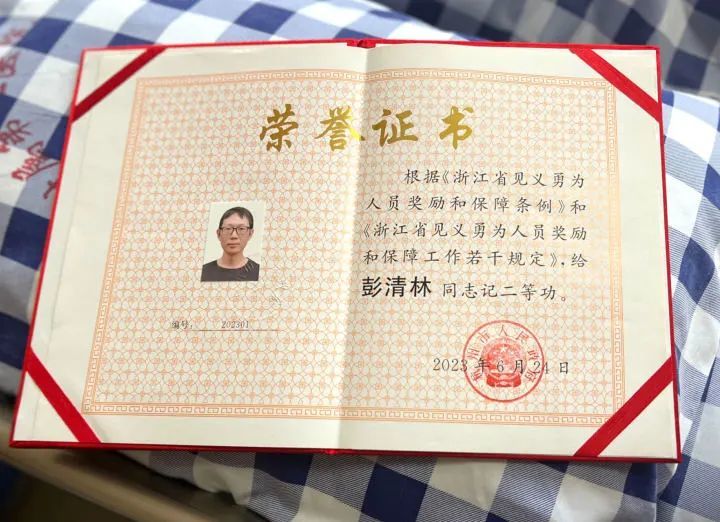 荣誉证书
编号: 202301
根据《浙江省见义勇为
人员奖励和保障条例》和
《浙江省见义勇为人员奖励
和保障工作若干规定》,给
彭清林 同志记二等功。
2023 年 6 月 24 日